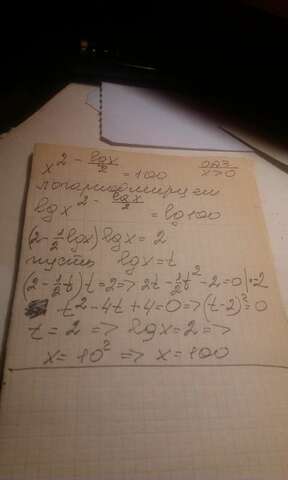 x^{2 - \frac{lgx}{2}} = 100 ОДЗ x>0
логарифмируем
lg x^{2 - \frac{lgx}{2}} = lg100
(2 - \frac{1}{2} lgx) lgx = 2
пусть lgx = t
(2 - \frac{1}{2} t) t = 2 => 2t - \frac{1}{2} t^2 - 2 = 0 | · 2
t^2 - 4t + 4 = 0 => (t-2)^2 = 0
t = 2 => lgx = 2 =>
x = 10^2 => x = 100